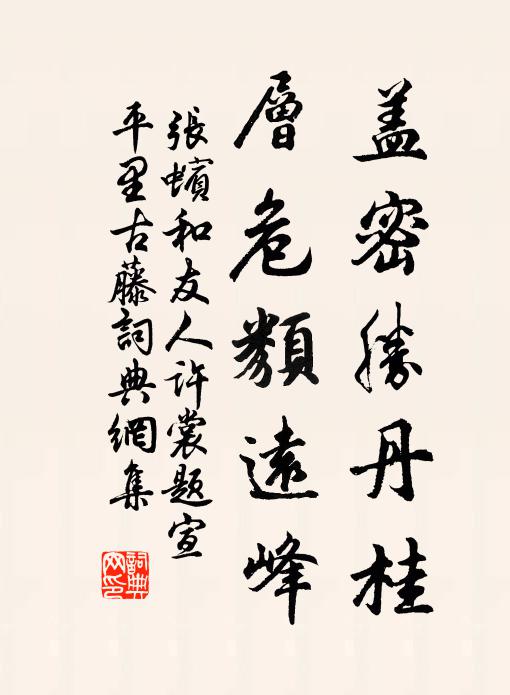 盖密勝丹桂
層危類遠峰
張蠙和友人許裳題宣
平里古藤詞典網集
詞典網印